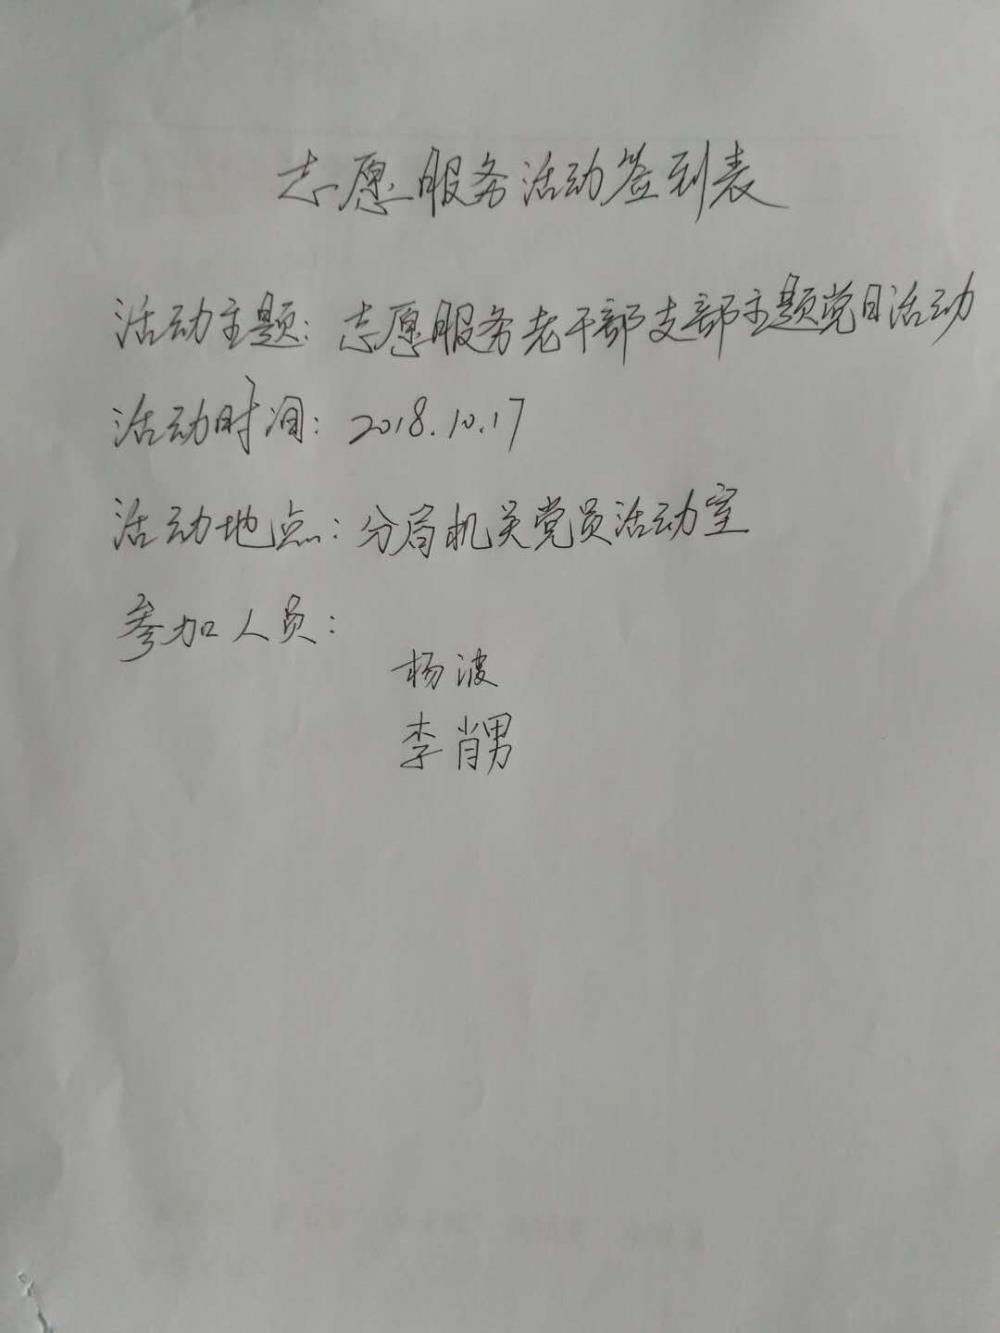 志愿服务活动签到表
活动主题：志愿服务老干部支部主题党日活动
活动时间：2018.10.17
活动地点：分局机关党员活动室
参加人员：
杨波
李肖男